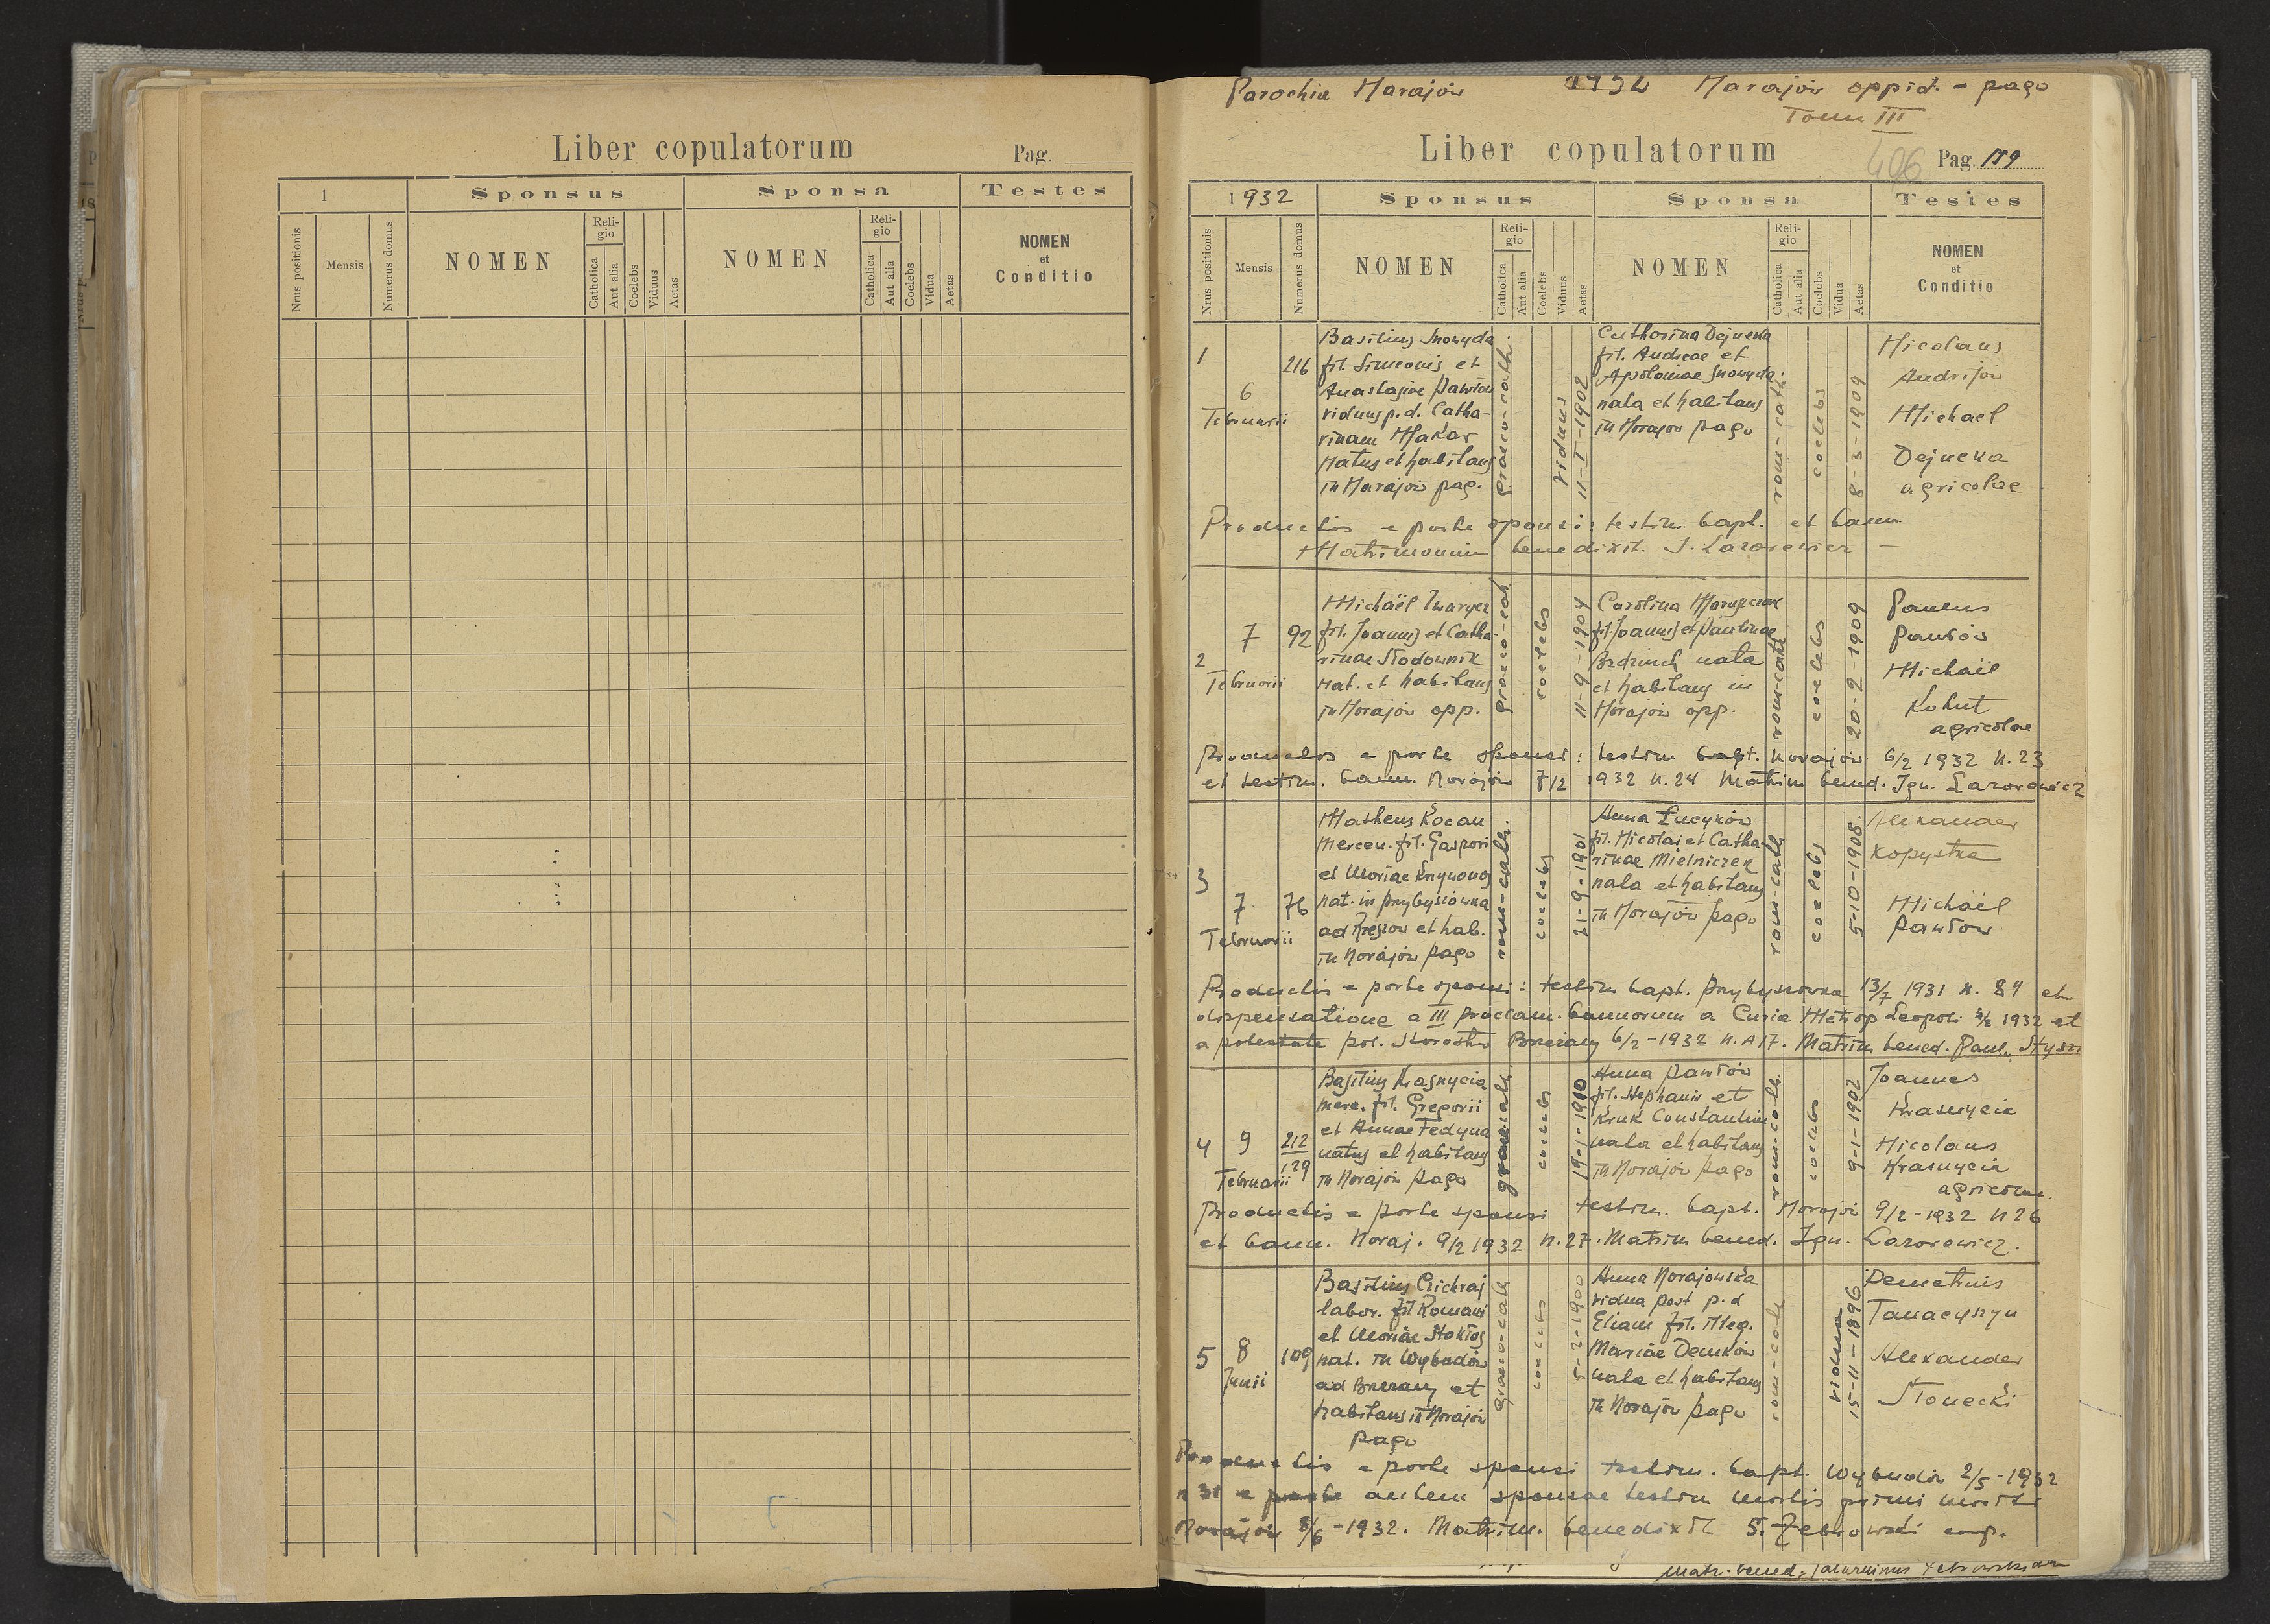 Liber copulatorum
Pag.
1
Sponsus
Sponsa
Testes
Nrus positionis
Mensis
Numerus domus
NOMEN
Reli-
gio
Catholica
Aut alia
Coelebs
Viduus
Aetas
NOMEN
Reli-
gio
Catholica
Aut alia
Coelebs
Vidua
Aetas
NOMEN
et
Conditio
Parochia Narajów 1932 Narajów oppid. - pago
Tom III
Liber copulatorum
406 Pag. 179
1932
Sponsus
Sponsa
Testes
Nrus positionis
Mensis
Numerus domus
NOMEN
Reli-
gio
Catholica
Aut alia
Coelebs
Viduus
Aetas
NOMEN
Reli-
gio
Catholica
Aut alia
Coelebs
Vidua
Aetas
NOMEN
et
Conditio
1
6
Februarii
216
Basilius Snowyda
fil. Simeonis et
Anastasiae Pawłow
viduus p. d. Catha-
rinam Makar
natus et habitans
in Narajów pag.
graeco-cath.
viduus
11-I-1902
Catharina Dejneka
fil. Andreae et
Apoloniae Snowyda
nata et habitans
in Narajow pago
rom-cath.
coelebs
8-3-1909
Nicolaus
Andrijów
Michael
Dejneka
agricolae
Productis e parte sponsi: testim. bapt. et bann
Matrimonium benedixit. I. Lazarewicz -
2
7
Februarii
92
Michaël Iwanycz
fil. Joannis et Catha-
rinae Słodownik
nat. et habitans
in Narajów opp.
graeco-cath
coelebs
11-9-1904
Carolina
fil. Joannis et Paulinae
nata
et habitans in
Narajów opp.
rom-cath
coelebs
20-2-1909
Paulus
Pawłów
Michaël
Kohut
agricolae
Productis e parte sponsi: testim bapt. Narajów 6/2 1932 N. 23
et testim. bann. Narajów 7/2 1932 N. 24 Matrim bened. Ign. Lazarewicz
3
7
Februarii
76
Matheus Kocan
mercen. fil. Gaspari
et Mariae
nat. in Przybyszówka
ad Rzeszow et hab.
in Narajów pago
rom-cath.
coelebs
21-9-1901
Anna Łucyków
fil. Nicolai et Catha-
rinae Mielniczek
nata et habitans
in Narajów pago
rom-cath
coelebs
5-10-1908.
Alexander
Kopystka
Michaël
Pawłow
Productis e parte sponsi: testim bapt. Przybyszowka 13/7 1931 N. 84 et
dispensatione a III proclam. bannorum a Curia Metrop Leopoli 3/2 1932 et
a potestate pol. Starostw Brzeżany 6/2-1932 N. A17. Matrim bened. Paul.
4
9
Februarii
212
129
Basilius Krasnycia
merc. fil. Gregorii
et Annae Fedyna
natus et habitans
in Narajów pago
coelebs
19-1-1910
Anna Pawłów
fil. Stephani et
Kruk Constantin
nata et habitans
in Narajów pago
rom-cath.
coelebs
9-1-1902
Joannes
Krasnycia
Nicolaus
Krasnycia
agricolae.
Productis e parte sponsi testim. bapt. Narajów 9/2-1932 N 26
et bann. Naraj. 9/2 1932 N. 27. Matrim bened. Ign. Lazarewicz.
5
8
Junii
109
Basilius Cichraj
labor. fil Romani
et Mariae Stokłos
nat. in Wybudów
ad Brzeżany et
habitans in Narajów
pago
graeco-cath
coelebs
5-2-1900
Anna Narajowska
vidua post p. d
Eliam fil. illeg.
Mariae Demków
nata et habitans
in Narajów pago
rom-cath
vidua
15-11-1896
Demetrius
Tanacyszyn
Alexander
Słonecki
Productis e parte sponsi testim. bapt. Wybudów 2/5-1932
N 31 e parte autem sponsae testim mortis primi mariti
Narajów 8/6-1932. Matrim. benedixit S. Żebrowski exp.
Matr. bened. Saturninus Żebrowski